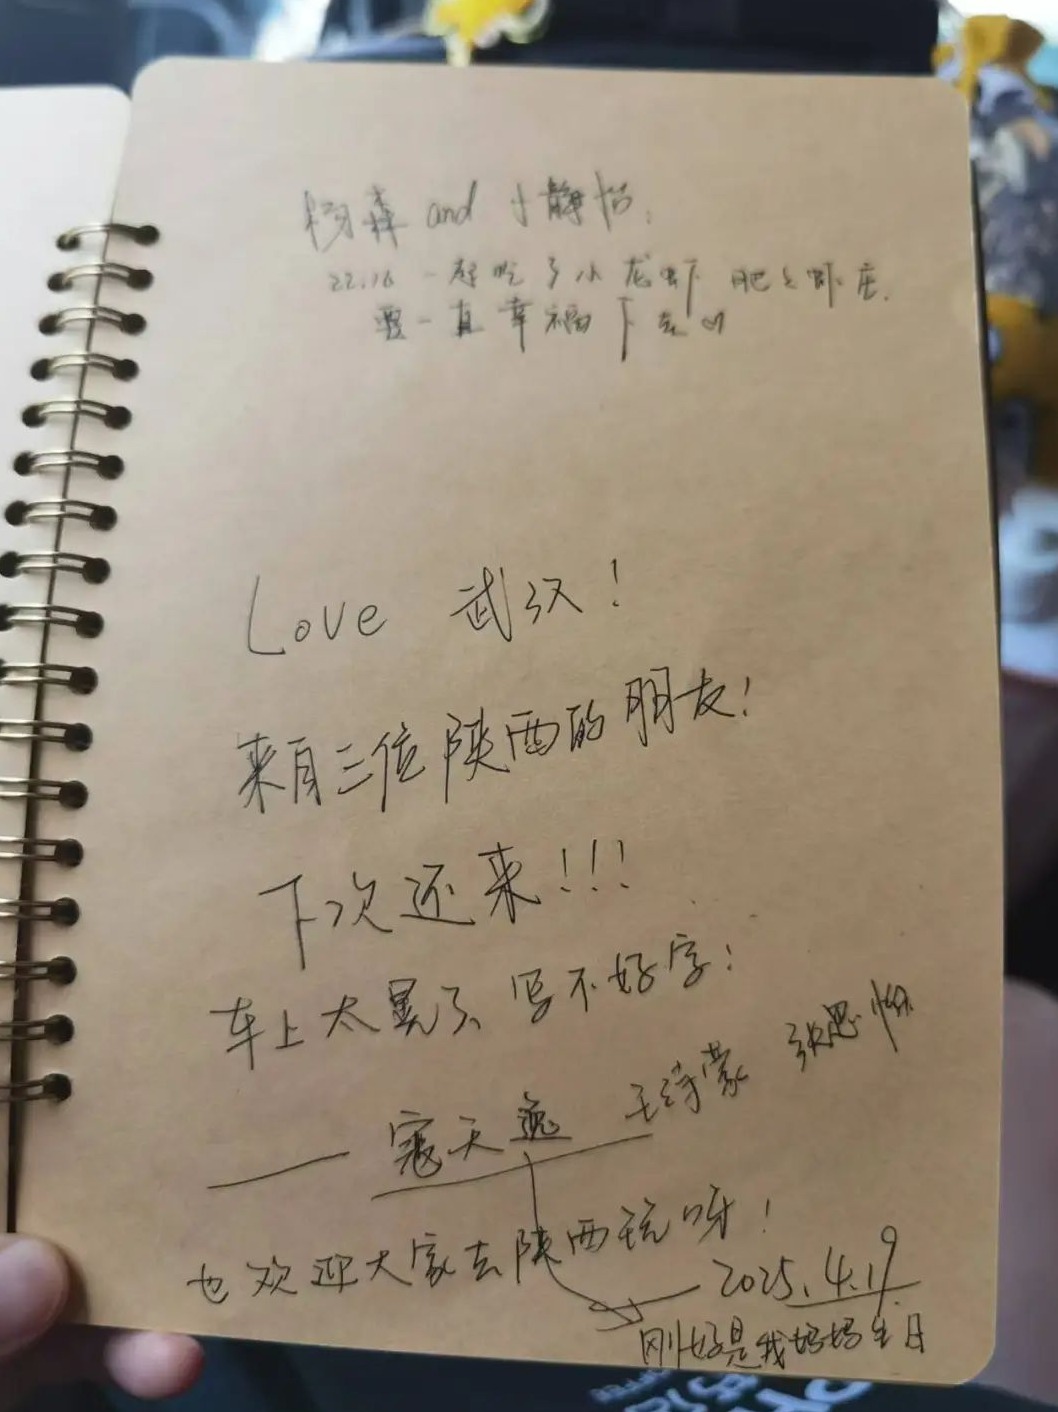 杨森 and 小静怡.
22.16 一起吃了小龙虾 肥肥虾庄.
要一直幸福下去♡
Love 武汉!
来自三位陕西的朋友!
下次还来!!!
车上太晃了、写不好字!
—— 寇天逸 王诗蒙 张思怡
也欢迎大家去陕西玩呀!
—— 2025.4.19
刚好是我妈妈生日